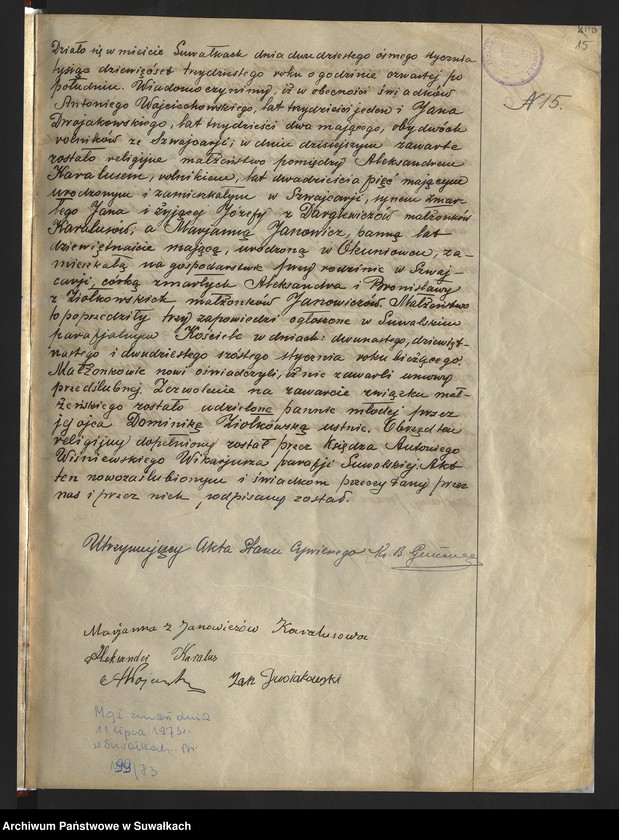 15
№ 15.
Działo się w mieście Suwałkach dnia dwudziestego ósmego stycznia
tysiąc dziewięćset trzydziestego roku o godzinie czwartej po
południu. Wiadomo czynimy, iż w obecności świadków
Antoniego Wojciechowskiego, lat trzydzieści jeden i Jana
Dwojakowskiego, lat trzydzieści dwa mającego, obydwóch
rolników ze Szwajcarji; w dniu dzisiejszym zawarte
zostało religijne małżeństwo pomiędzy Aleksandrem
Karalusem, rolnikiem, lat dwadzieścia pięć mającym
urodzonym i zamieszkałym w Szwajcarji, synem zmar-
łego Jana i żyjącej Józefy z Dargiewiczów małżonków
Karalusów, a Marjanną Janowicz, panną lat
dziewiętnaście mającą, urodzoną w Okuniowcu, za-
mieszkałą na gospodarstwie przy rodzinie w Szwaj-
carji, córką zmarłych Aleksandra i Bronisławy
z Ziółkowskich małżonków Janowiczów. Małżeństwo
to poprzedziły trzy zapowiedzi ogłoszone w Suwalskim
parafjalnym Kościele w dniach: dwunastego, dziewięt-
nastego i dwudziestego szóstego stycznia roku bieżącego.
Małżonkowie nowi oświadczyli, iż nie zawarli umowy
przedślubnej. Zezwolenie na zawarcie związku mał-
żeńskiego zostało udzielone pannie młodej przez
jej ojca Dominikę Ziółkowską ustnie. Obrzęd ten
religijny dopełniony został przez Księdza Antoniego
Wiśniewskiego Wikarjusza parafji Suwalskiej. Akt
ten nowozaślubionym i świadkom przeczytany przez
nas i przez nich podpisany został.
Utrzymujący Akta Stanu Cywilnego Ks. B
Marjanna z Janowiczów Karalusowa
Aleksander Karalus
Jan Dwojakowski
Mąż zmarł dnia
11 lipca 1973 r.
w Suwałkach. Nr.
199/73
Archiwum Państwowe w Suwałkach